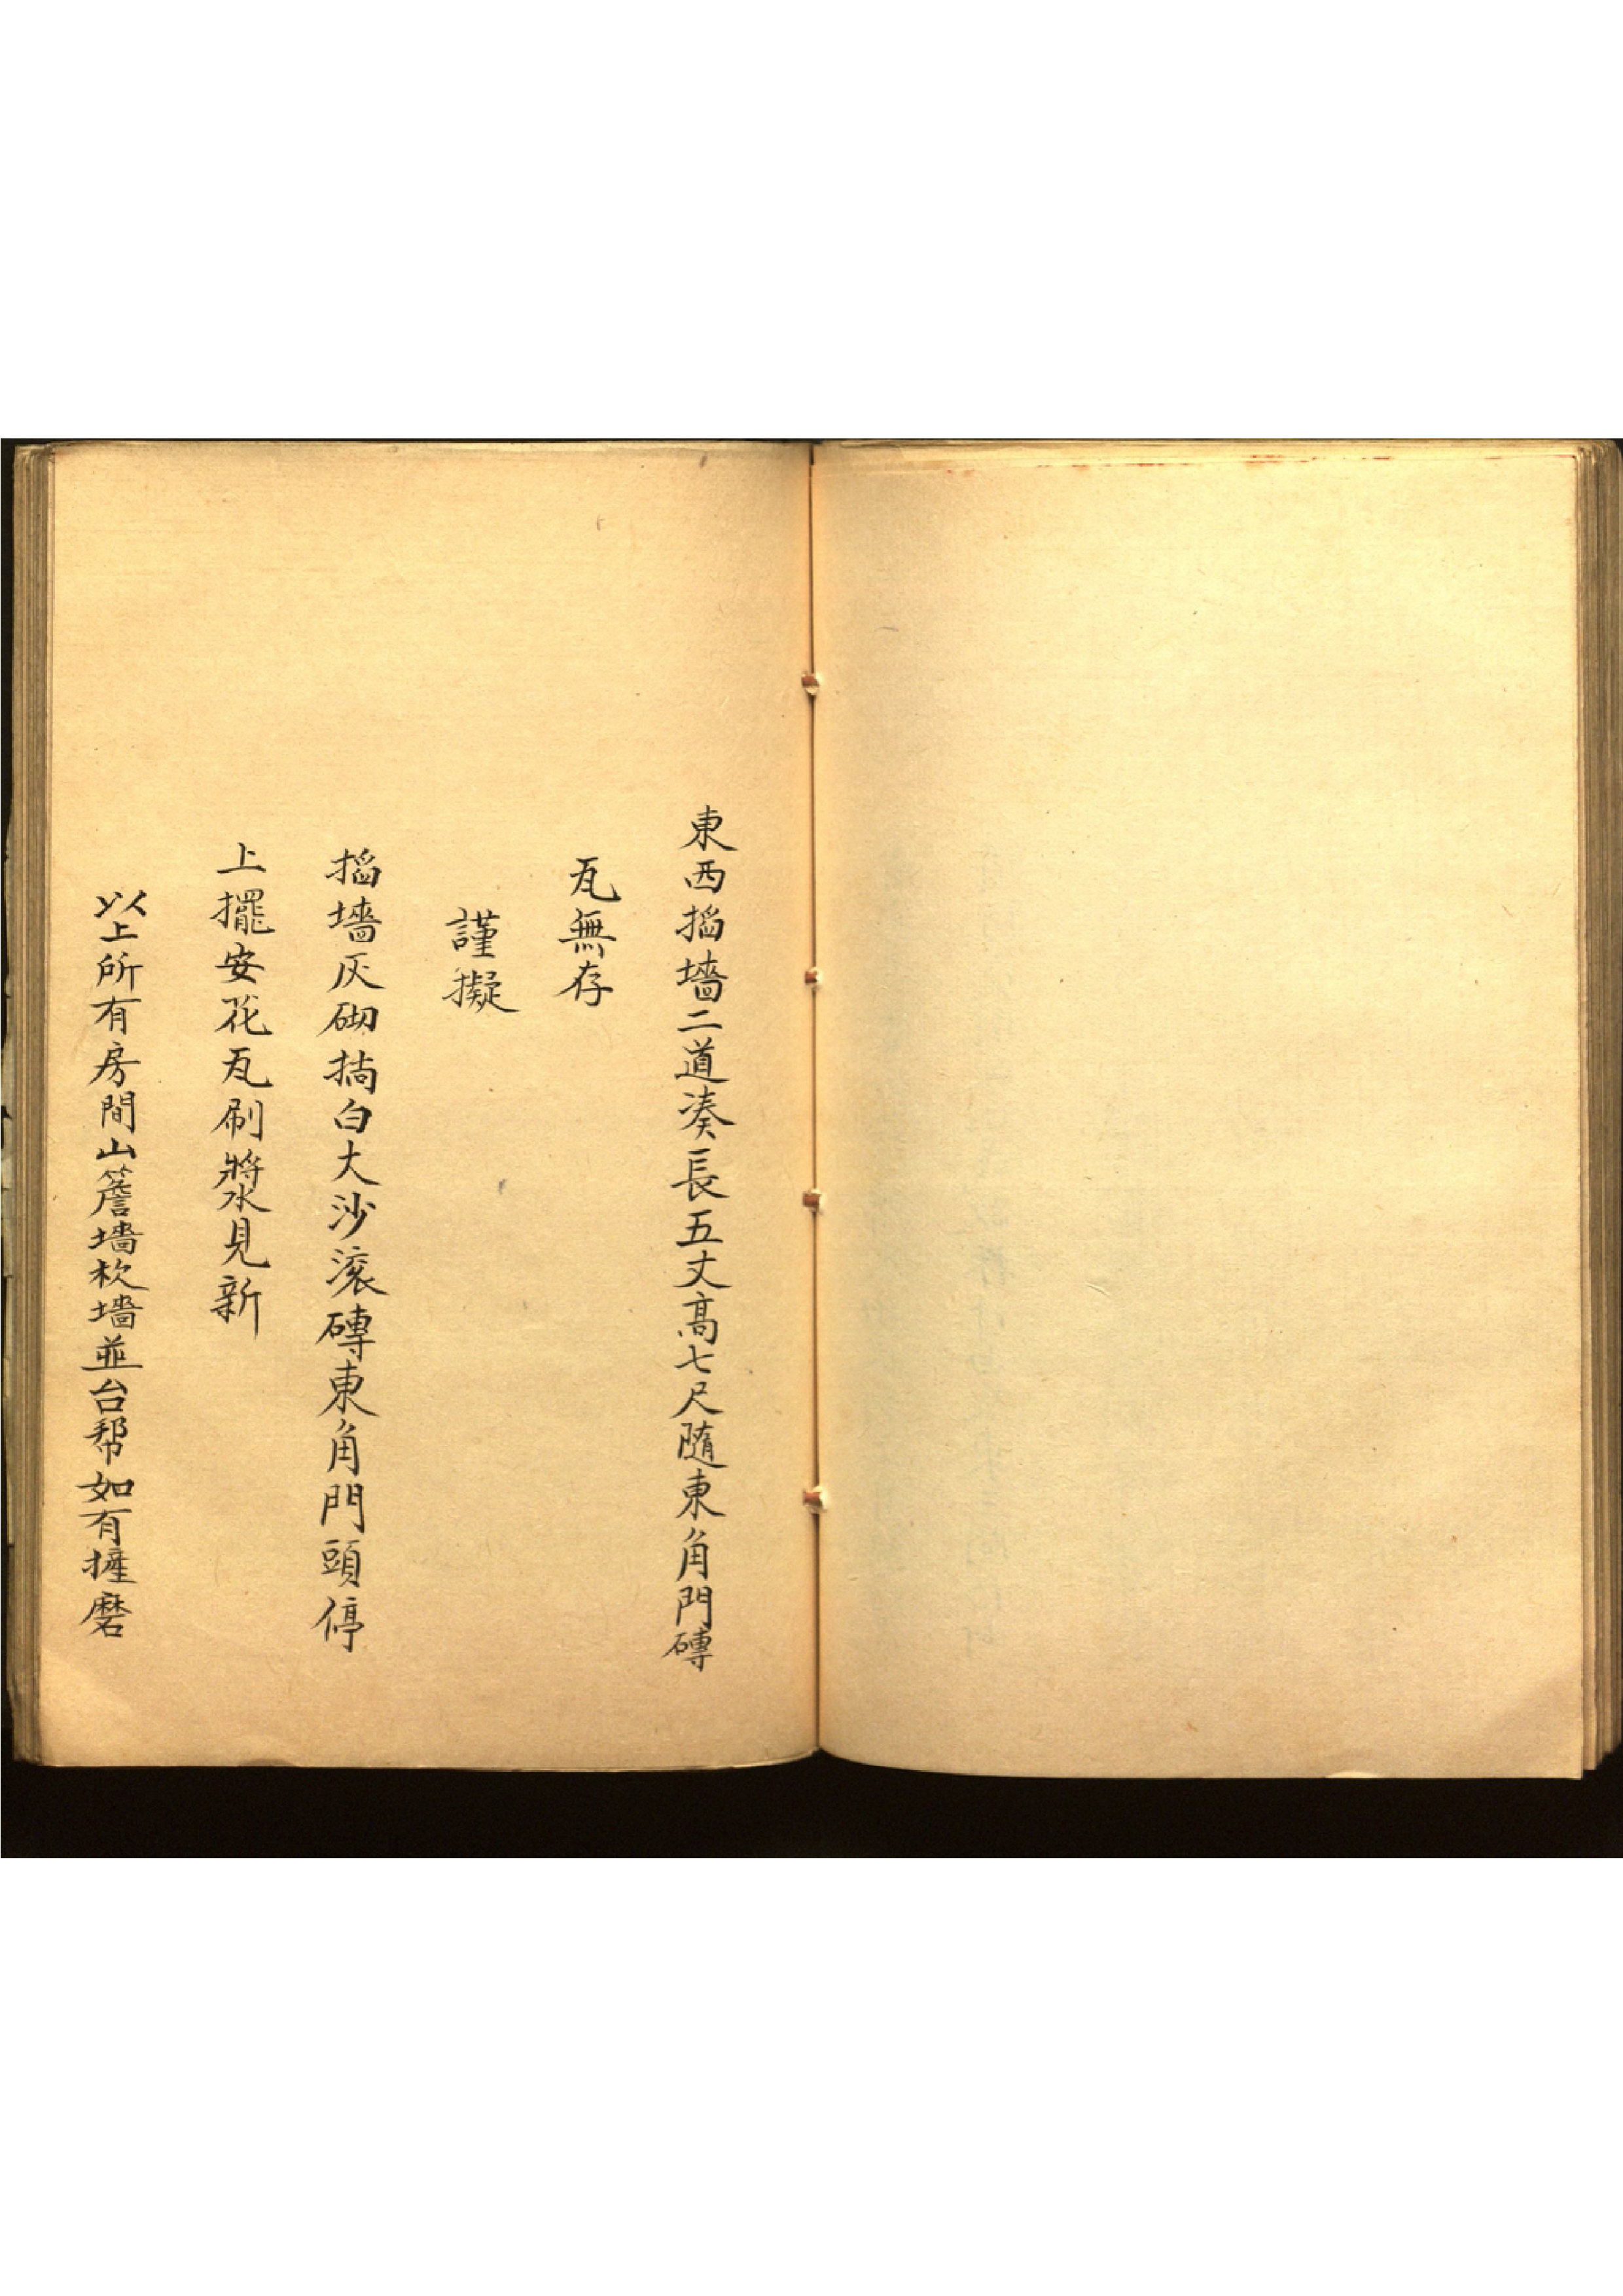 東西搯墻二道凑長五丈高七尺隨東角門磚
瓦無存
謹擬
搯墻灰砌掏白大沙滚磚東角門頭停
上擺安花瓦刷漿見新
以上所有房間山簷墻坎墻並台幫如有摧磨